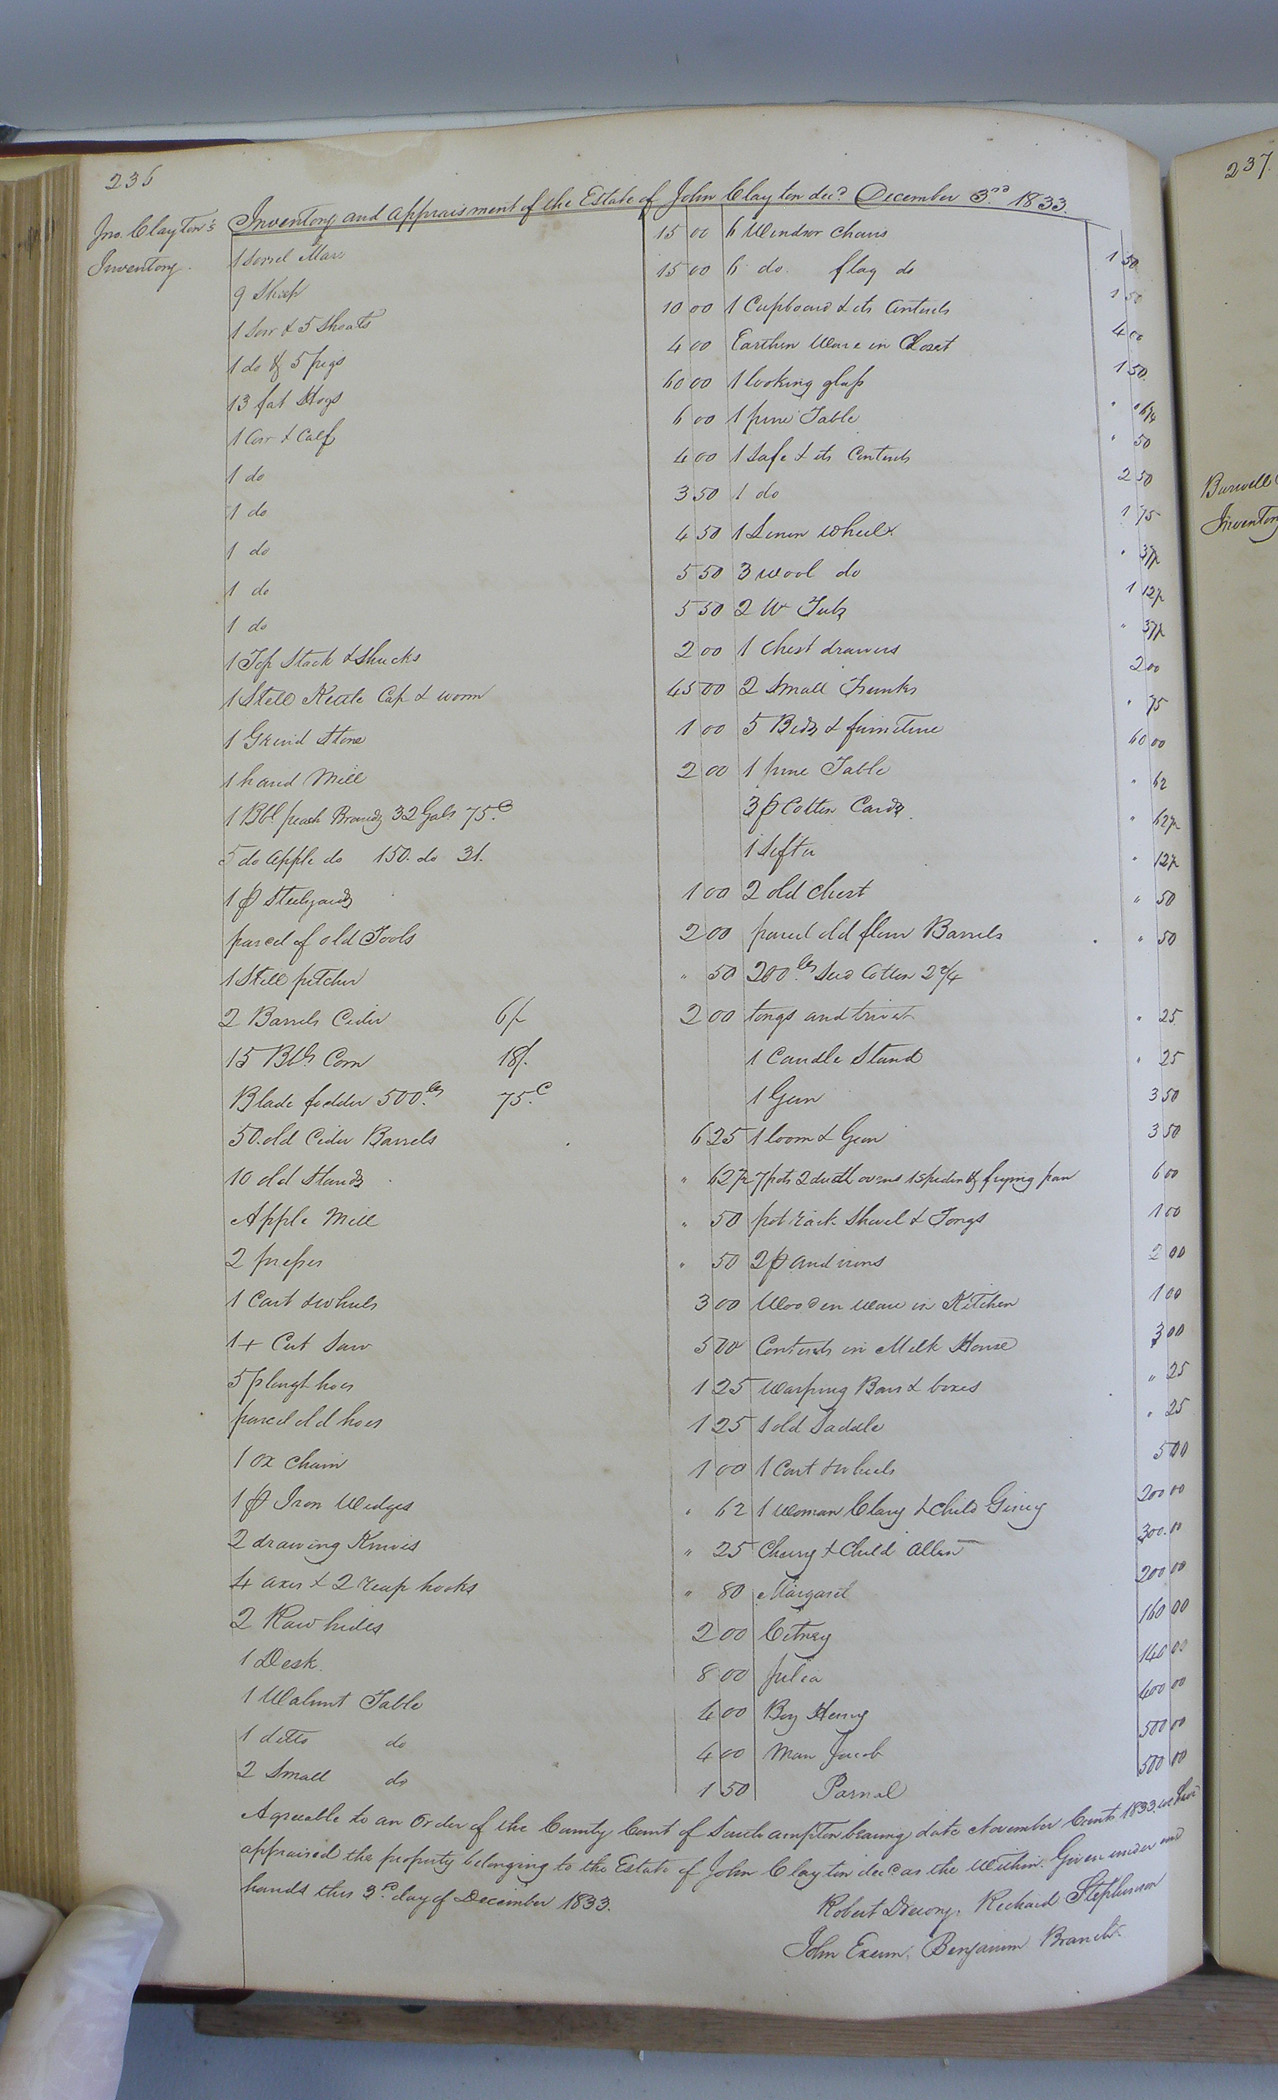 236
237.
Inventory and appraisment of the Estate of John Clayton decd December 3rd 1833.
Jno. Clayton's
Inventory.
1 Sorrel Mare 15 00
9 Sheep 15 00
1 Sow & 5 Shoats 10 00
1 do & 5 pigs 4 00
13 fat Hogs 60 00
1 Cow & Calf 6 00
1 do 4 00
1 do 3 50
1 do 4 50
1 do 5 50
1 do 5 50
1 Top Stack & Shucks 2 00
1 Still Kettle Cap & worm 45 00
1 Grind Stone 1 00
1 hand Mill 2 00
1 Bbl peach Brandy 32 Gals 75 c
5 do apple do 150. do 31.
1 p Steelyards 1 00
parcel of old Tools 2 00
1 Still pitcher " 50
2 Barrels Cider 6/- 2 00
15 Bls Corn 18/.
Blade fodder 500 lbs 75 c
50. old Cider Barrels 6 25
10 old Stands " 62½
Apple Mill " 50
2 presses " 50
1 Cart & wheels 3 00
1 + Cut Saw 5 00
5 plough hoes 1 25
parcel old hoes 1 25
1 ox chain 1 00
1 p Iron Wedges " 62
2 drawing Knives " 25
4 axes & 2 reap hooks " 80
2 Raw hides 2 00
1 Desk. 8 00
1 Walnut Table 4 00
1 ditto do 4 00
2 Small do 1 50
6 Windsor chairs 1 50
6 do. flag do 1 50
1 Cupboard & its Contents 4 00
Earthen Ware in Closet 1 50.
1 looking glass " 6¼
1 pine Table " 50
1 Safe & its Contents 2 50
1 do 1 75
1 Linen wheel " 37½
3 wool do 1 12½
2 W Tubs " 37½
1 Chest drawers 2 00
2 Small Trunks " 75
5 Beds & furniture 60 00
1 pine Table " 62
3 p Cotton Cards. " 62½
1 Sifter " 12½
2 old Chest " 50
parcel old flour Barrels " 50
200 lbs Seed Cotton 2¼
tongs and trivet " 25
1 Candle Stand " 25
1 Gun 3 50
1 loom & Gear 3 50
7 pots 2 ducth ovens 1 Spider & frying pan 6 00
pot rack Shovel & Tongs 1 00
2 p andirons 2 00
Wooden ware in Kitchen 1 00
Contents in Milk House 3 00
Warping Bars & boxes " 25
1 old Saddle " 25
1 Cart & wheels 5 00
1 Woman Clary & Child Giney 200 00
Cherry & Child Allen 300.00
Margaret 200 00
Citney 160 00
Julia 140 00
Boy Henry 400 00
Man Jacob 500 00
Parnal 500 00
Agreeable to an Order of the County Court of Southampton bearing date November Court 1833. we have
appraised the property belonging to the Estate of John Clayton decd as the Within. Given under our
hands this 3rd day of December 1833.
Robert Drewry. Richard Stephenson
John Exum. Benjamin Branch.
Inventory